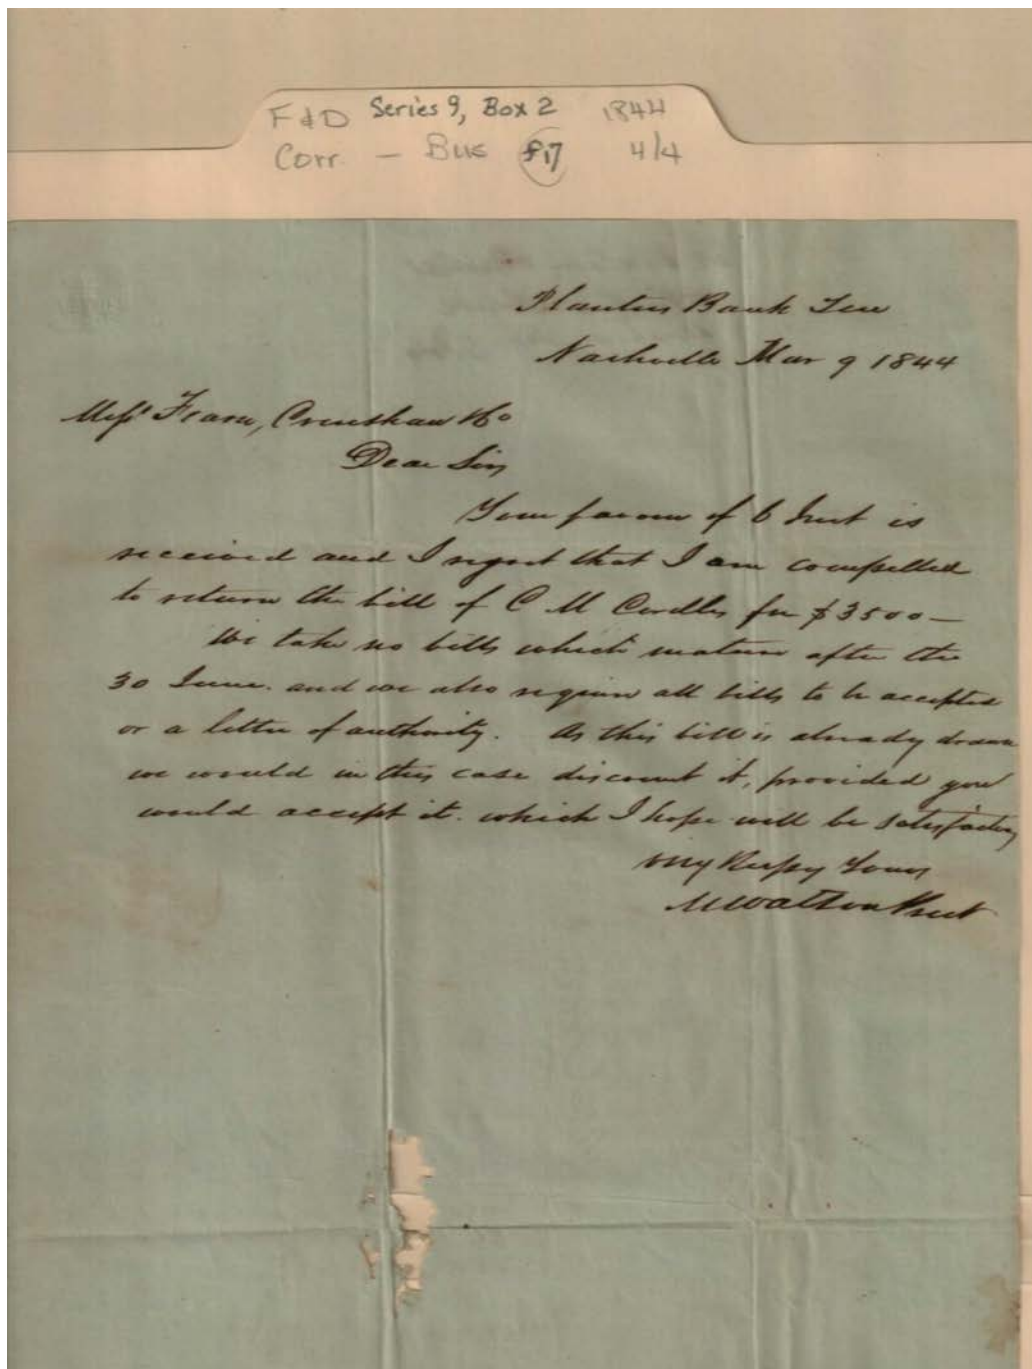 F & D Series 9, Box 2 1844
Corr - Bus F17 4/4
Planters Bank Ten
Nashville Mar 9 1844
Messs Fearn, Crenshaw & Co
Dear Sirs
Your favour of 6 Inst is
received and I regret that I am compelled
to return the bill of C M for $3500—
We take no bills which mature after the
30 June. and we also require all bills to be accepted
or a letter of authority. As this bill is already drawn
we would in this case discount it, provided you
would accept it. which I hope will be satisfactory
Very Respy Yours
M Watson Prest